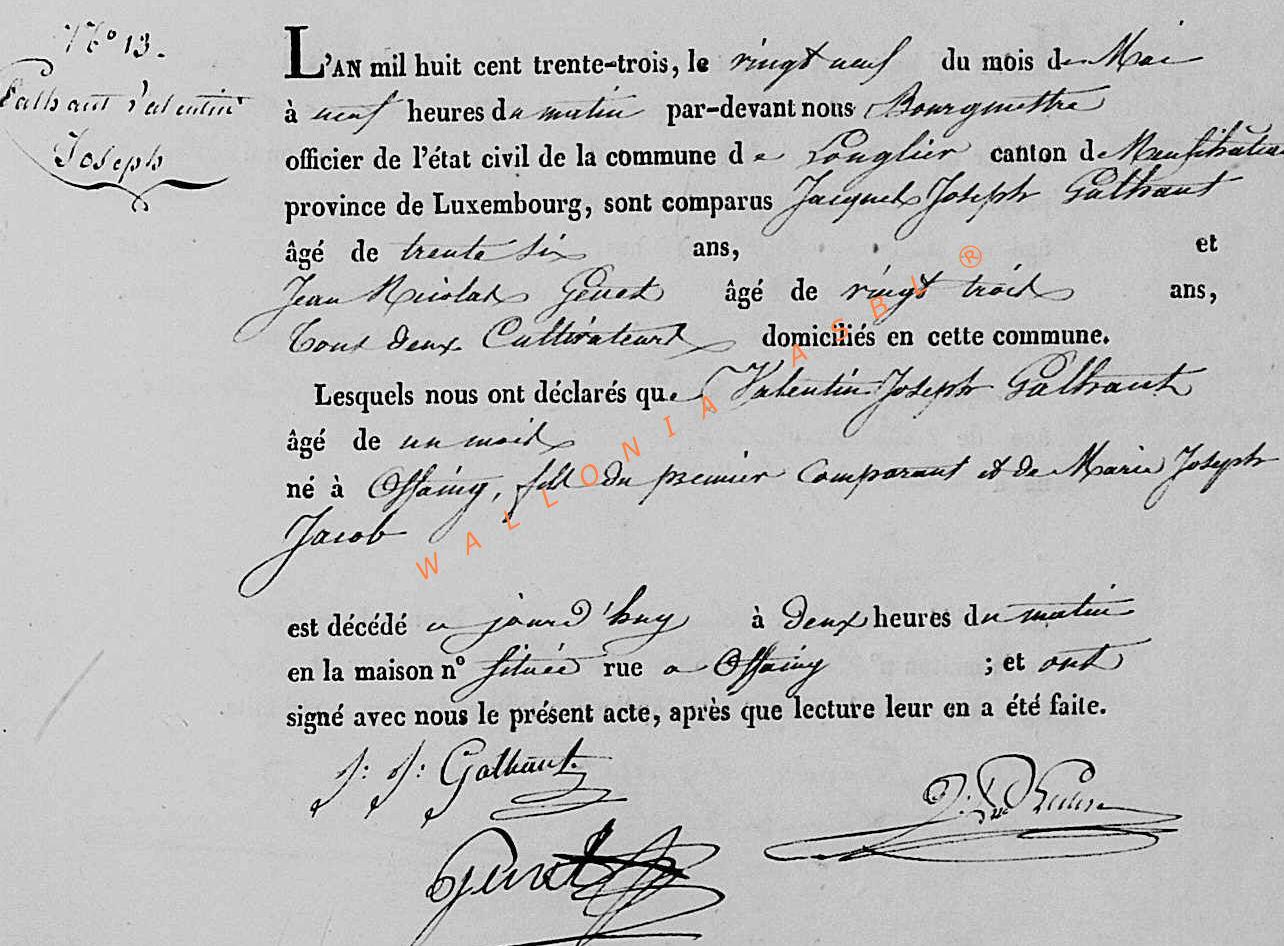 N.° 13.
Galhaut Valentin
Joseph
L'AN mil huit cent trente-trois, le vingt neuf du mois de Mai
à neuf heures du matin par-devant nous Bourgmettre
officier de l'état civil de la commune de Longlier canton de Neufchâteau
province de Luxembourg, sont comparus Jacques Joseph Galhaut
âgé de trente six ans, et
Jean Nicolas Genet âgé de vingt trois ans,
Tous deux Cultivateurs domiciliés en cette commune.
Lesquels nous ont déclarés que Valentin Joseph Galhaut
âgé de un mois
né à Offaing, fils du premier Comparant et de Marie Joseph
Jacob
est décédé ce jourd'huy à deux heures du matin
en la maison n° située rue a Offaing ; et ont
signé avec nous le présent acte, après que lecture leur en a été faite.
J: J: Galhaut.
Genet
WALLONIA ASBL ®